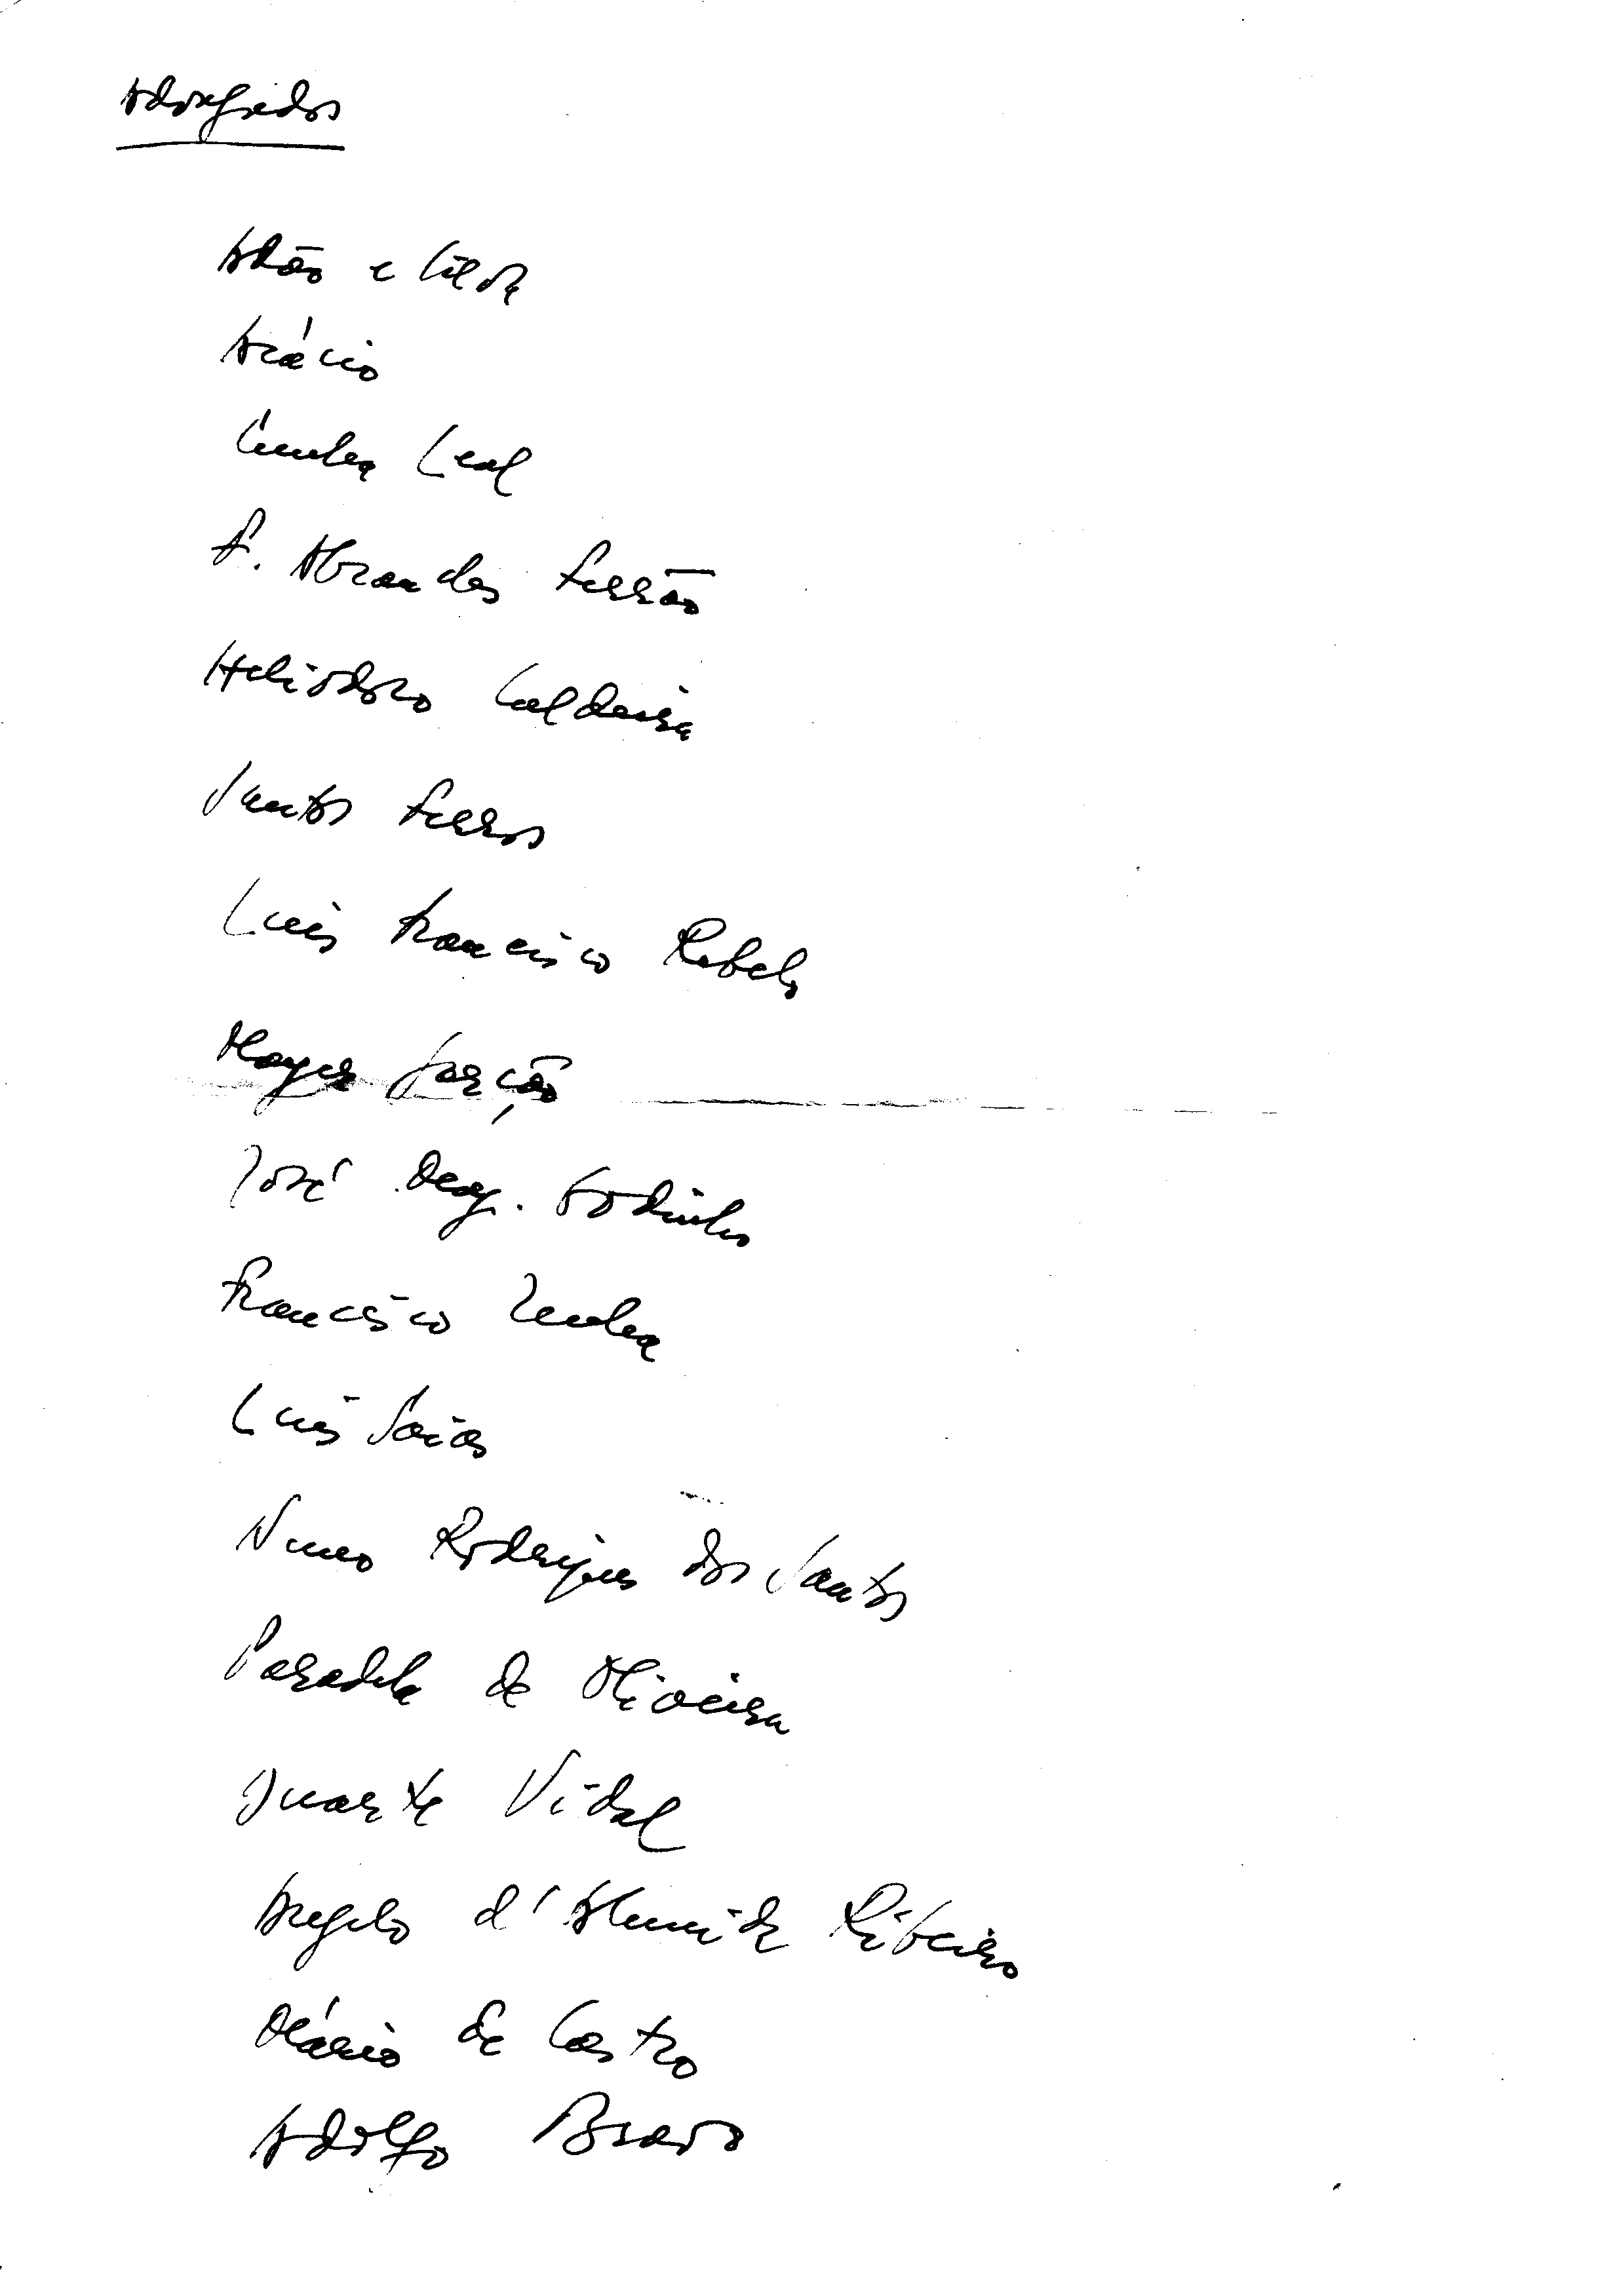 Advogados
Adão e Cilda
Acácio
Cunha Leal
F. Abranches Ferrão
Heliodoro Caldeira
Santos Ferros
Luís Francisco Rebelo
Mayer Garção
José Mag. Godinho
Francisco Zenha
Luís Saias
Nuno Rodrigues dos Santos
Paradela de Oliveira
Duarte Vidal
Angelo d'Almeida Ribeiro
Mário de Castro
Adolfo Bravo